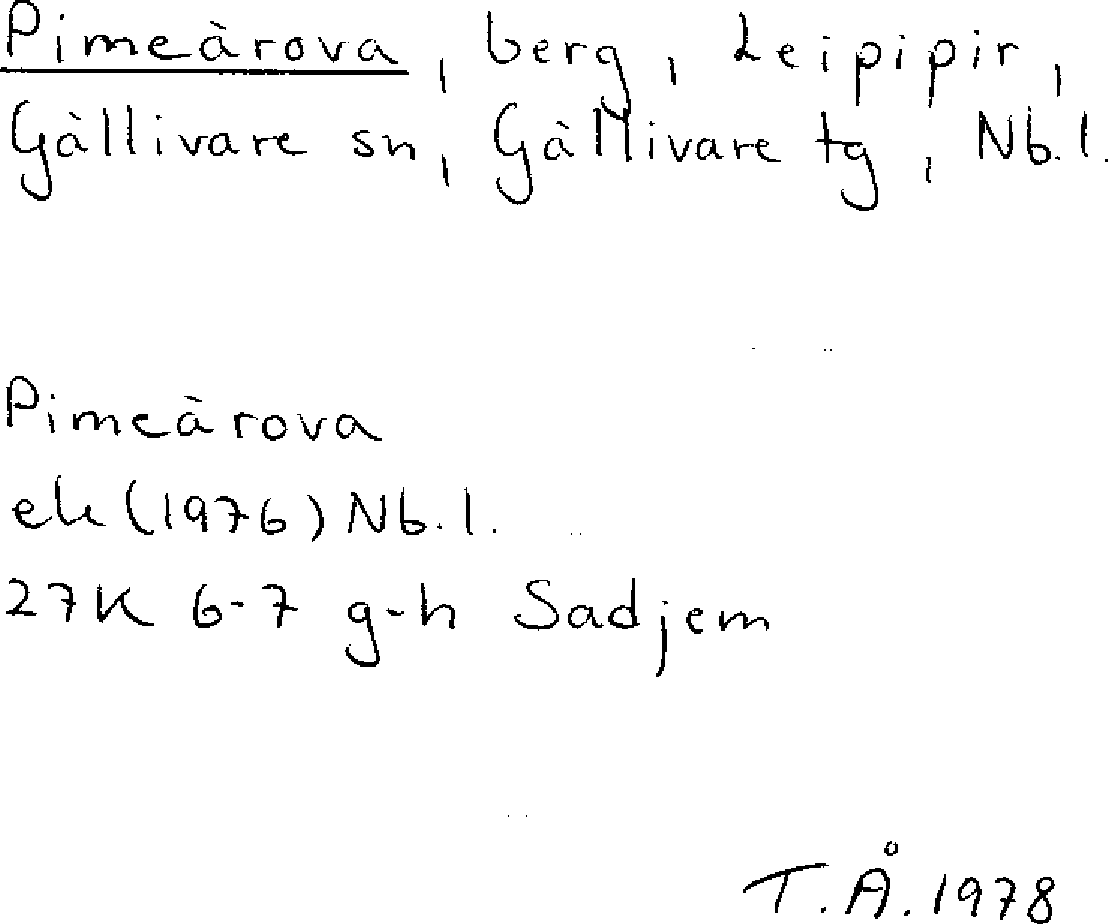 Pimeärova, berg, Leipipir,
Gällivare sn, Gällivare tg, Nb.l.
Pimeärova
ek (1976) Nb.l.
27K 6-7 g-h Sadjem
T.Å. 1978